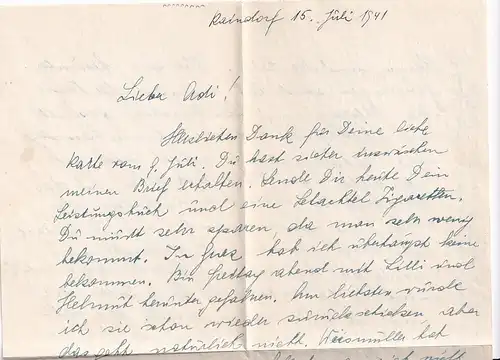 Raindorf 15. Juli 1941
Lieber Adi!
Herzlichen Dank für Deine liebe
Karte vom 9. Juli. Du hast sicher inzwischen
meinen Brief erhalten. Sende Dir heute Dein
Leistungsbuch und eine Schachtel Zigaretten.
Du mußt sehr sparen, da man sehr wenig
bekommt. In Graz hab ich überhaupt keine
bekommen. Bin Freitag abend mit Lilli und
Helmut herunter gefahren. Am liebsten würde
ich sie schon wieder zurückschicken aber
das geht natürlich nicht. Weismüller hat